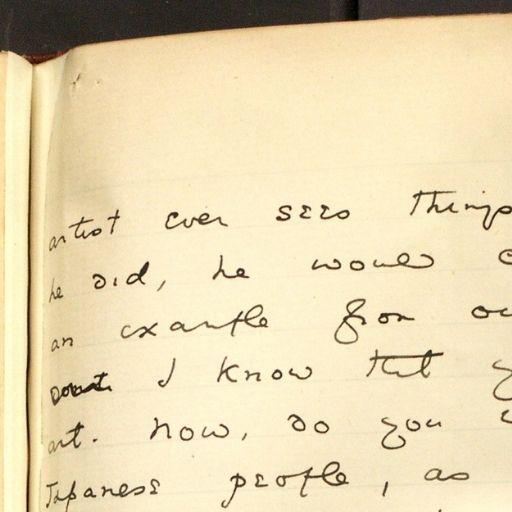 artist ever sees things
he did, he would
an example from
I know that
art. Now, do you
Japanese people, as